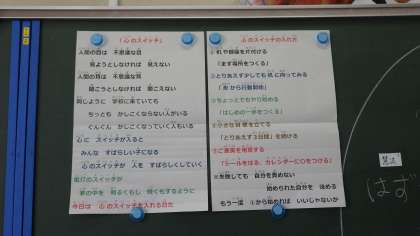 「心のスイッチ」
人間の目は 不思議な目
見ようとしなければ 見えない
人間の耳は 不思議な耳
聞こうとしなければ 聞こえない
同じように 学校に来ていても
ちっとも かしこくならない人がいる
ぐんぐん かしこくなっていく人もいる
心に スイッチが入ると
みんな すばらしい子になる
心のスイッチが 人を すばらしくしていく
電灯のスイッチが
家の中を 明るくもし 暗くもするように
今日は 心のスイッチを入れる日だ
心のスイッチの入れ方
①机や部屋を片付ける
「まず場所をつくる」
②とりあえず少しでも机に向ってみる
「形から行動開始」
③ちょっとでもやり始める
「はじめの一歩をつくる」
④小さな目標を立てる
「とりあえず3日間」を続ける
⑤ご褒美を用意する
「シールをはる、カレンダーに○をつける」
⑥失敗しても 自分を責めない
始められた自分を ほめる
もう一度 ①から始めれば いいじゃないか
はず